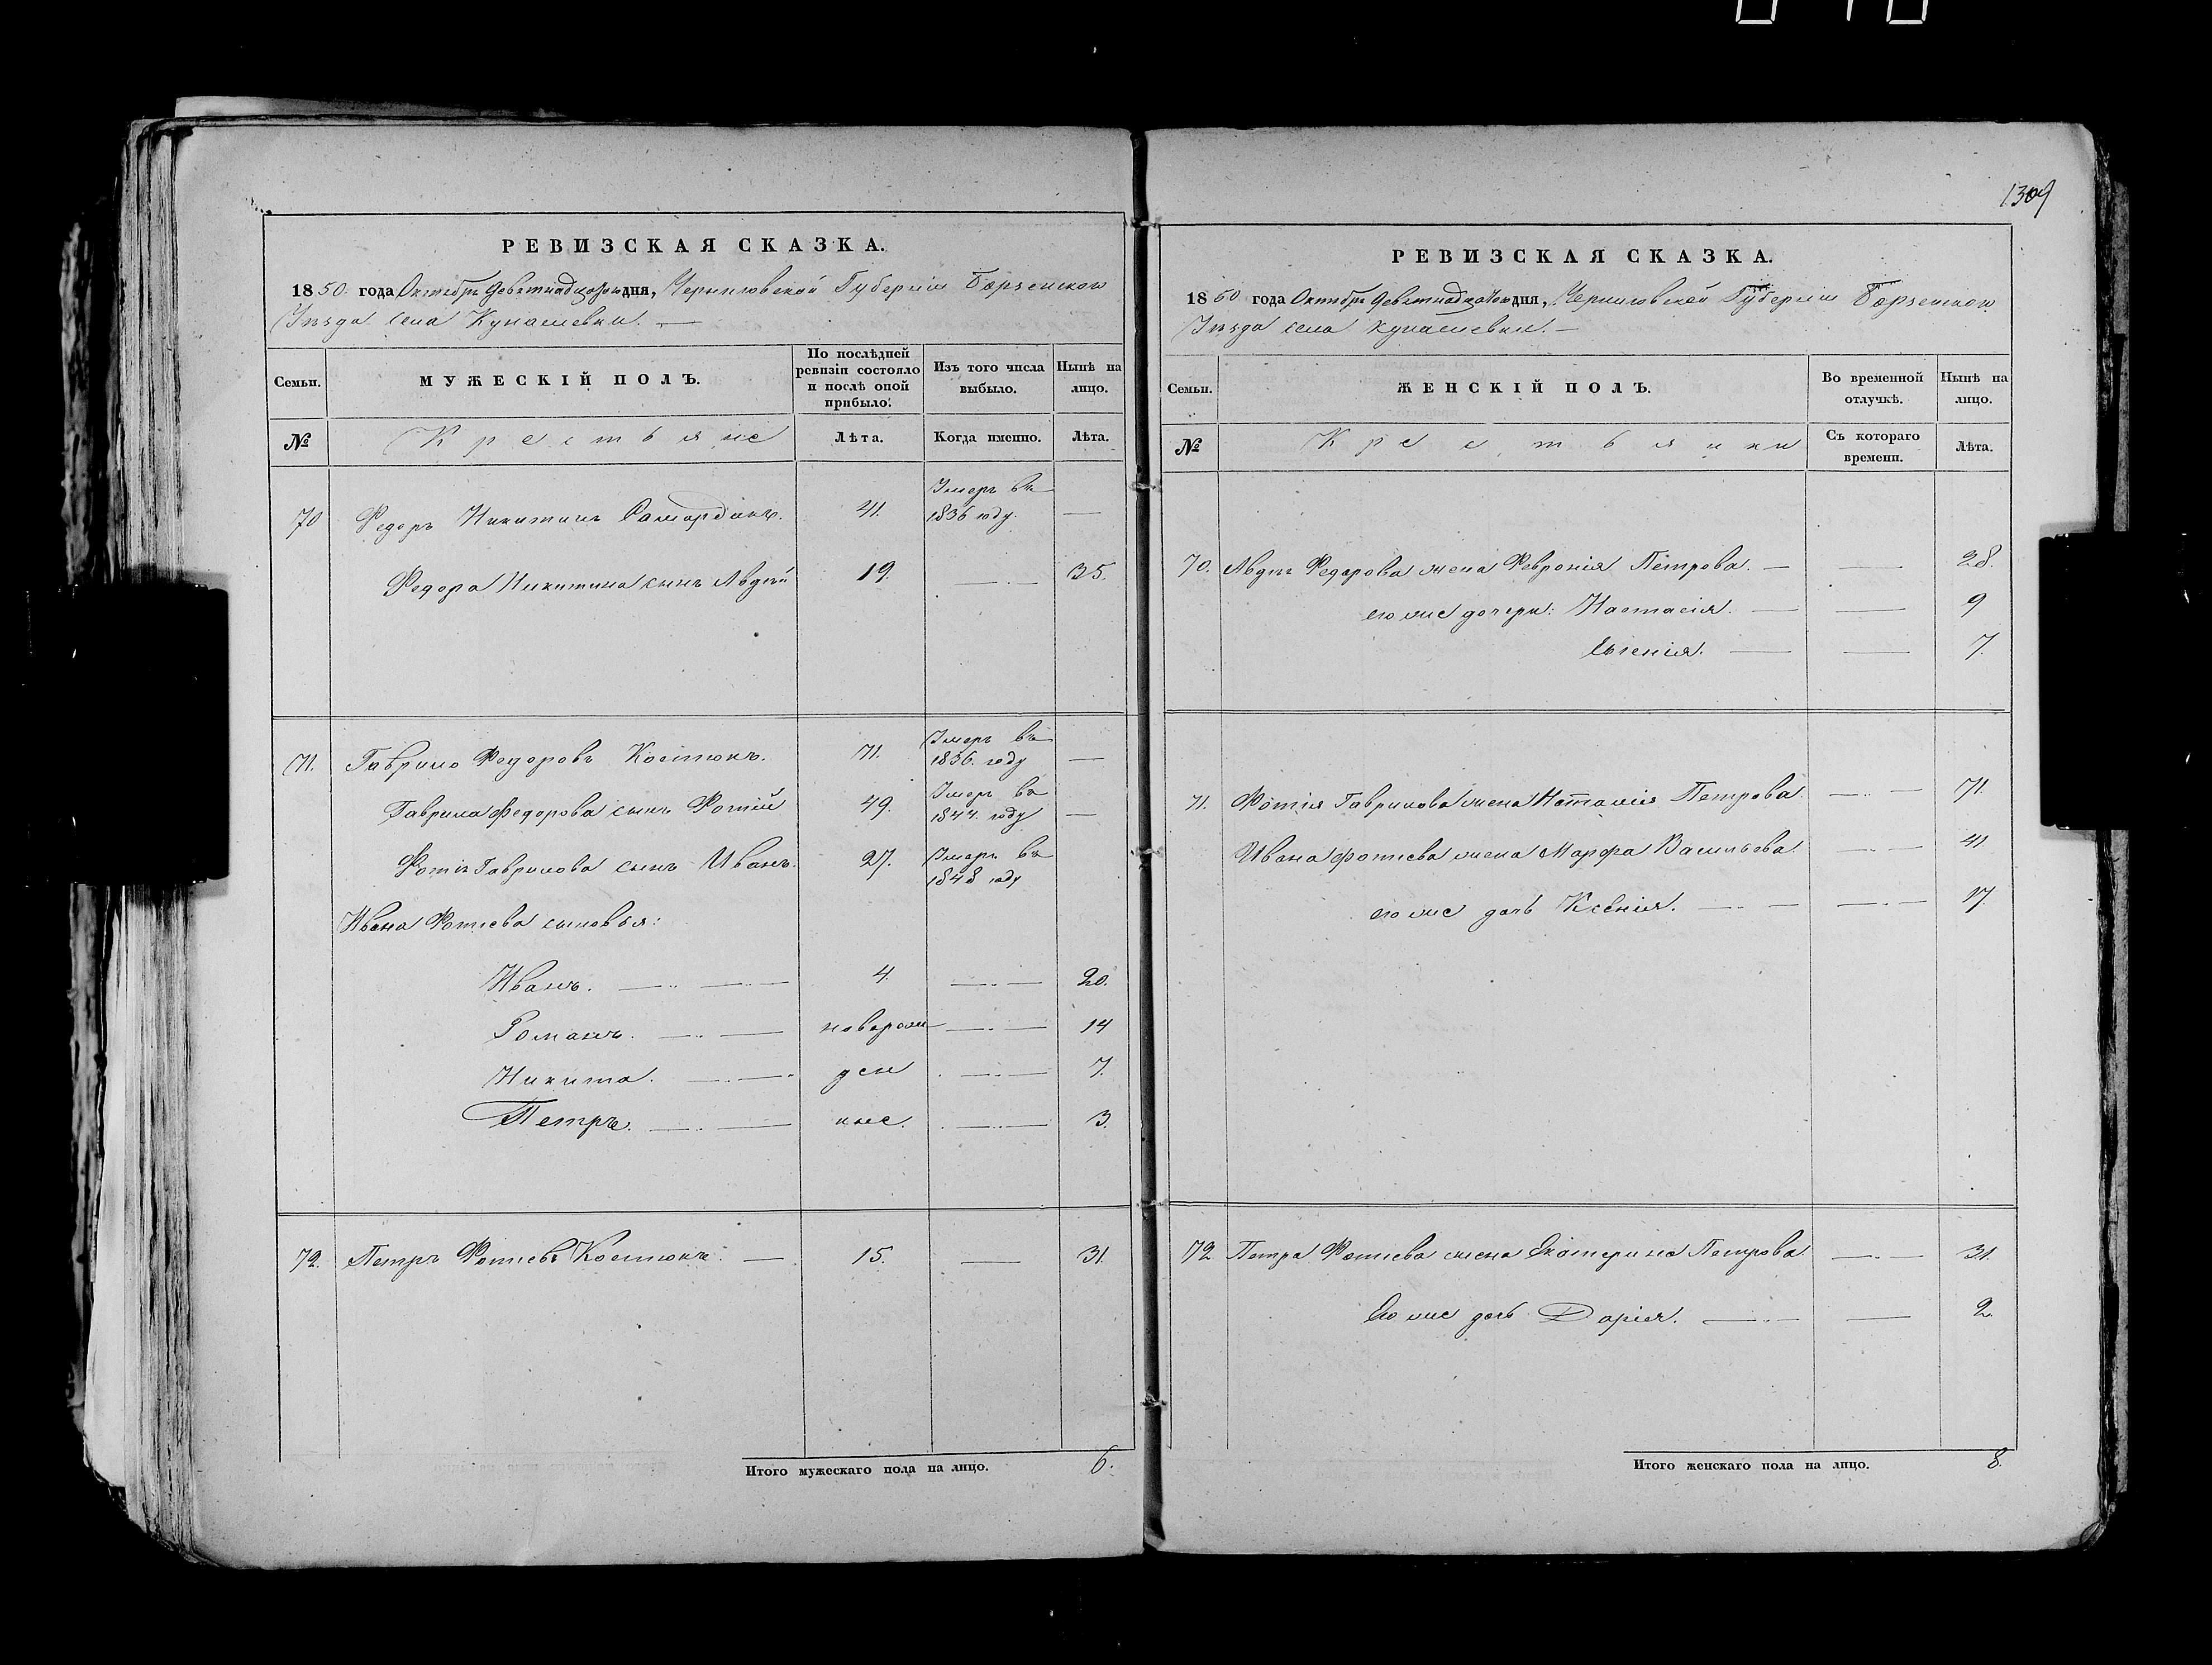 1309
РЕВИЗСКАЯ СКАЗКА.
1850 года Октября девятнадцатого дня, Черниговской Губернии Борзенского
Уезда села Кунашевки. —
Семьи. МУЖЕСКІЙ ПОЛЪ. По послѣдней ревизіи состояло и послѣ оной прибыло. Изъ того числа выбыло. Нынѣ на лицо.
№ Крестьяне Лѣта. Когда именно. Лѣта.
70 Федоръ Никитинъ 41. Умеръ въ 1836 году. —
Федора Никитина сынъ Авдѣй 19. — 35.
71. Гаврило Федоровъ Костюкъ. 71. Умеръ въ 1836. году —
Гаврила Федорова сынъ Фотій 49. Умеръ въ 1844. году —
Фотія Гаврилова сынъ Иванъ. 27. Умеръ въ 1848 году
Ивана Фотіева сыновья:
Иванъ. — 4. — 20.
Романъ. — новорож — 14
Никита. — ден — 7.
Петръ. — ные. — 3.
72. Петръ Фотіевъ Костюкъ. — 15. — 31.
Итого мужескаго пола на лицо. 6.
РЕВИЗСКАЯ СКАЗКА.
1850 года Октября девятнадцатого дня, Черниговской Губерніи Борзенского
Уезда села Кунашевки. —
Семьи. ЖЕНСКІЙ ПОЛЪ. Во временной отлучкѣ. Нынѣ на лицо.
№ Крестьянки Съ котораго времени. Лѣта.
70. Авдѣя Федорова жена Февронія Петрова. — — 28.
его же дочери: Настасія. — — 9
Евгенія. — — 7.
71. Фотія Гаврилова жена Наталія Петрова — 71.
Ивана Фотіева жена Марфа Васильева. — 41
его же дочь Ксенія. — — 17.
72. Петра Фотіева жена Екатерина Петрова — 31.
Его же дочь Дарія. — — 2.
Итого женскаго пола на лицо. 8.